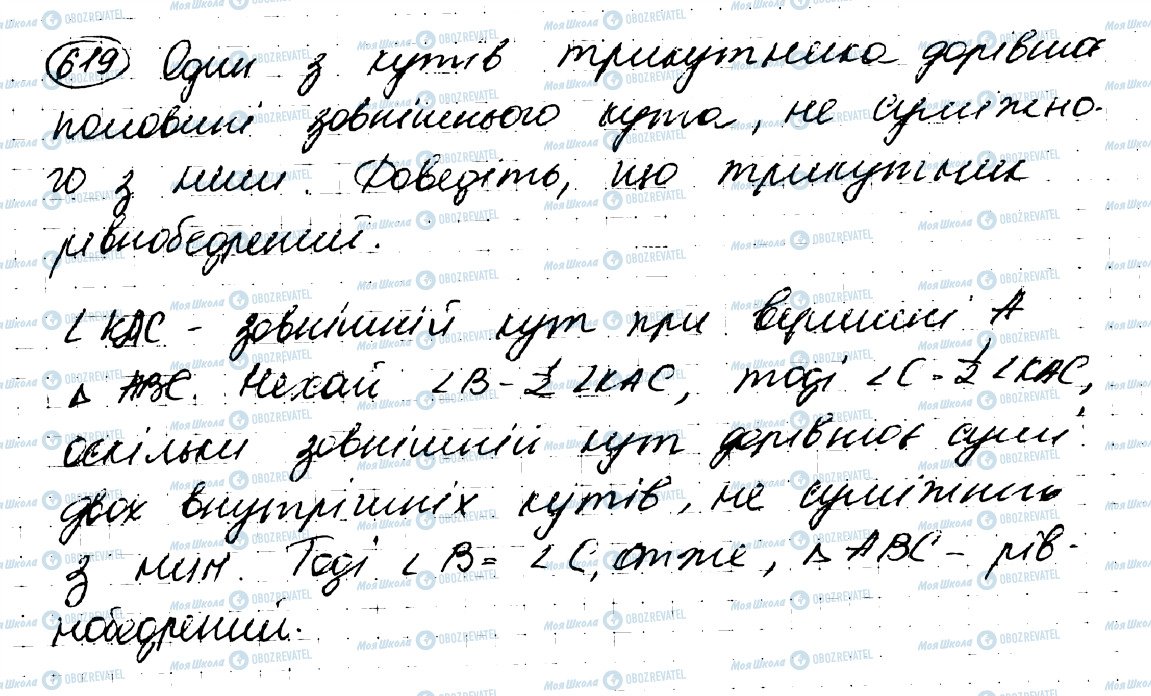 619 Один з кутів трикутника дорівнює
половині зовнішнього кута, не суміжно-
го з ним. Доведіть, що трикутник
рівнобедрений.
∠KAC - зовнішній кут при вершині A
△ ABC. Нехай ∠B - 1/2 ∠KAC, тоді ∠C = 1/2 ∠KAC,
оскільки зовнішній кут дорівнює сумі
двох внутрішніх кутів, не суміжного
з ним. Тоді ∠B = ∠C, отже, △ ABC - рів-
нобедрений.